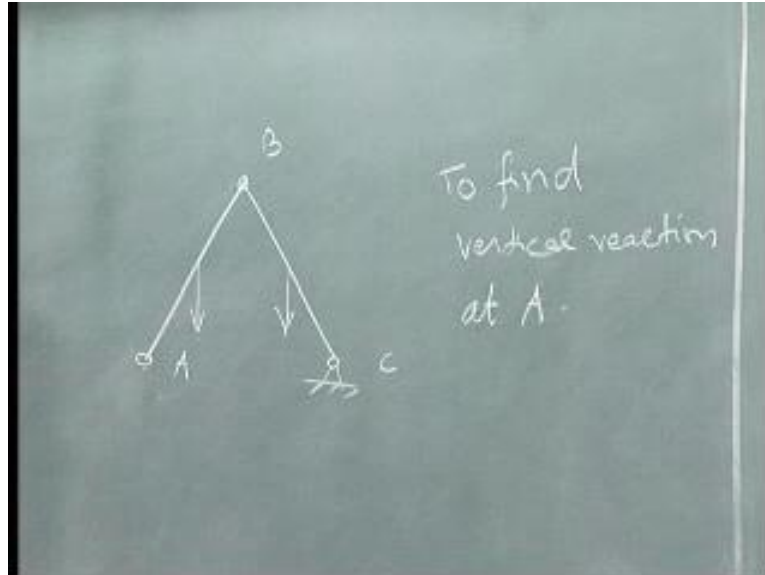 B
To find
vertical reaction
at A.
A
C